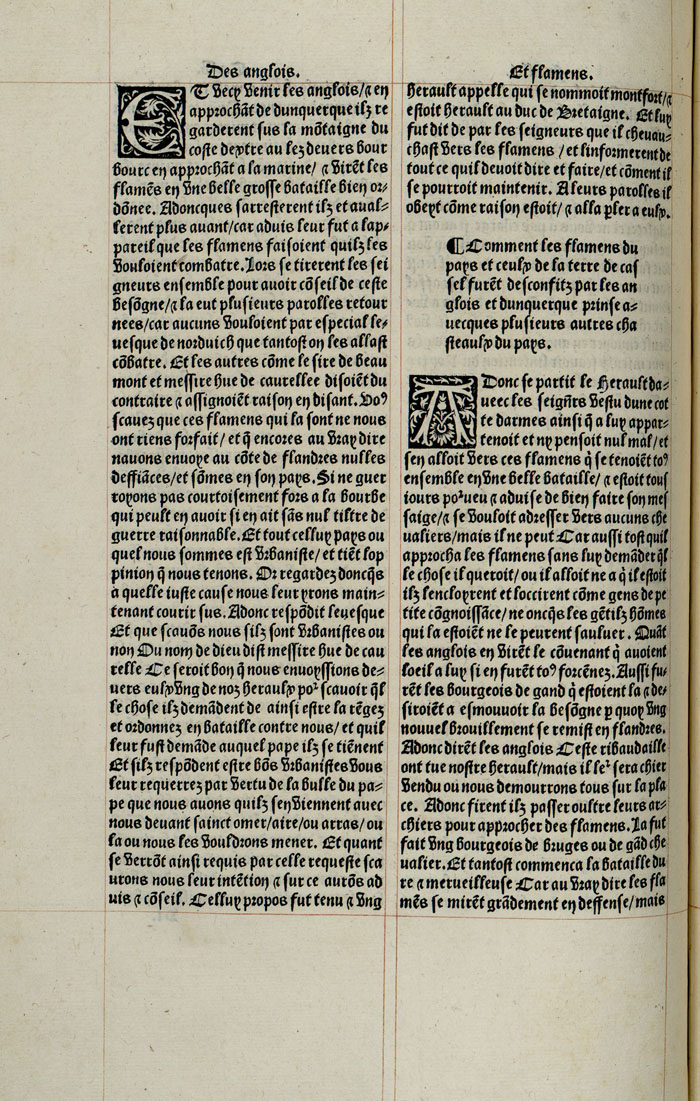 Des anglois.
ET vecy venir les anglois/ ⁊ en
approchãt de dunquerque ilz re
garderent sus la mõtaigne du
coste deptre au lez deuers bour
bourc en approchãt a la marine/ ⁊ virẽt les
flamẽs en vne belle grosse bataille bien or-
dõnee. Adoncques sarresterent ilz et aual-
lerent plus auant/car aduis leur fut a lap-
pareil que les flamens faisoient quilz les
vouloient combatre. Lors se tirerent les sei
gneurs ensemble pour auoir cõseil de ceste
besõgne/⁊ la eut plusieurs parolles retour
nees/car aucuns vouloient par especial le-
uesque de norduich que tantost on les allast
cõbatre. Et les autres cõme le sire de beau
mont et messire hue de caurellee disoiẽt du
contraire ⁊ assignoiẽt raison en disant. Voꝰ
scauez que ces flamens qui la sont ne nous
ont riens forfait/ et q̃ encores au vray dire
nauons enuoye au cõte de flandres nulles
deffiãces/et sõmes en son pays. Si ne guer
royons pas courtoisement fors a la bourbe
qui peult en auoir si en ait sãs nul tiltre de
guerre raisonnable. Et tout celluy pays ou
quel nous sommes est vrbaniste/ et tiẽt lop
pinion q̃ nous tenons. Or regardez doncq̃s
a quelle iuste cause nous leur yrons main-
tenant courir sus. Adonc respõdit leuesque
Et que scauõs nous silz sont vrbanistes ou
non Ou nom de dieu dist messire hue de cau
relle Ce seroit bon q̃ nous enuoyssions de-
uers eulx vng de noz heraulx poᷣ scauoir q̃l
le chose ilz demãdent de ainsi estre la rẽgez
et ordonnez en bataille contre nous/ et quil
leur fust demãde auquel pape ilz se tiẽnent
Et silz respõdent estre bõs vrbanistes vous
leur requerrez par vertu de la bulle du pa-
pe que nous auons quilz sen viennent auec
nous deuant sainct omer/aire/ou arras/ ou
la ou nous les vouldrons mener. Et quant
se verrõt ainsi requis par celle requeste sca
urons nous leur intẽtion ⁊ sur ce aurõs ad
uis ⁊ cõseil. Celluy propos fut tenu ⁊ vng
Et flamens.
herault appelle qui se nommoit montfort/⁊
estoit herault au duc de Bretaigne. Et luy
fut dit de par les seigneurs que il cheuau-
chast vers les flamens / et linformerent de
tout ce quil deuoit dire et faire/et cõment il
se pourroit maintenir. A leurs parolles il
obeyt cõme raison estoit/ ⁊ alla ꝑler a eulx.
¶Comment les flamens du
pays et ceulx de la terre de cas
sel furẽt desconfitz par les an
glois et dunquerque prinse a-
uecques plusieurs autres cha
steaulx du pays.
ADonc se partit le Herault da-
ueec les seign̄rs vestu dune cot
te darmes ainsi q̃ a luy appar-
tenoit et ny pensoit nul mal/et
sen alloit vers ces flamens q̃ se tenoiẽt toꝰ
ensemble en vne belle bataille/ ⁊ estoit tous
iours poᷣueu ⁊ aduise de bien faire son mes
saige/⁊ se vouloit adresser vers aucuns che
ualiers/mais il ne peut Car aussi tost quil
approcha les flamens sans luy demãder q̃l
le chose il queroit/ ou il alloit ne a q̃ il estoit
ilz lencloyrent et loccirent cõme gens de pe
tite cõgnoissãce/ ne oncq̃s les gẽtilz hõmes
qui la estoiẽt ne le peurent sauluer. Quãt
les anglois en virẽt le cõuenant q̃ auoient
loeil a luy si en furẽt toꝰ forcẽnez. Aussi fu-
rẽt les bourgeois de gand q̃ estoient la ⁊ de-
siroiẽt a esmouuoir la besõgne ꝑ quoy vng
nouuel brouillement se remist en flandres.
Adonc dirẽt les anglois Ceste ribaudaille
ont tue nostre herault/mais il leᷣ sera chier
vendu ou nous demourrons tous sur la pla
ce. Adonc firent ilz passer oultre leurs ar-
chiers pour approcher des flamens. La fut
fait vng bourgeois de bruges ou de gãd che
ualier. Et tantost commenca la bataille du
re ⁊ merueilleuse Car au vray dire les fla
mẽs se mirẽt grãdement en deffense/mais